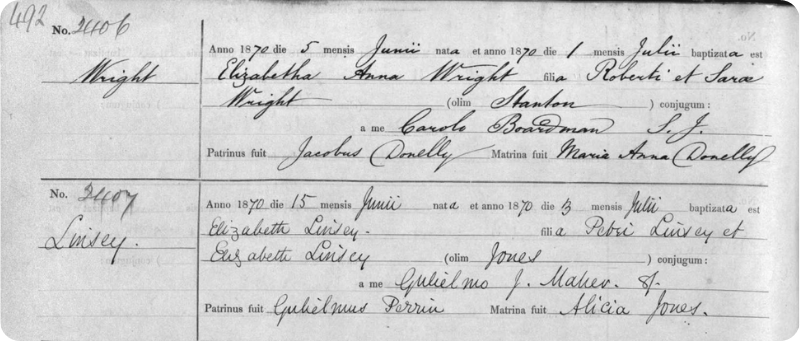 492
No. 2406
Anno 1870 die 5 mensis Junii nata et anno 1870 die 1 mensis Julii baptizata est
Wright
Elizabetha Anna Wright filia Roberti et Saræ
Wright (olim Stanton ) conjugum:
a me Carolo Boardman S. J.
Patrinus fuit Jacobus Donelly Matrina fuit Maria Anna Donelly
No. 2407
Anno 1870 die 15 mensis Junii nata et anno 1870 die 3 mensis Julii baptizata est
Linsey.
Elizabeth Linsey. filia Petri Linsey et
Elizabeth Linsey (olim Jones ) conjugum:
a me Gulielmo J.
Patrinus fuit Gulielmus Perrin Matrina fuit Alicia Jones.